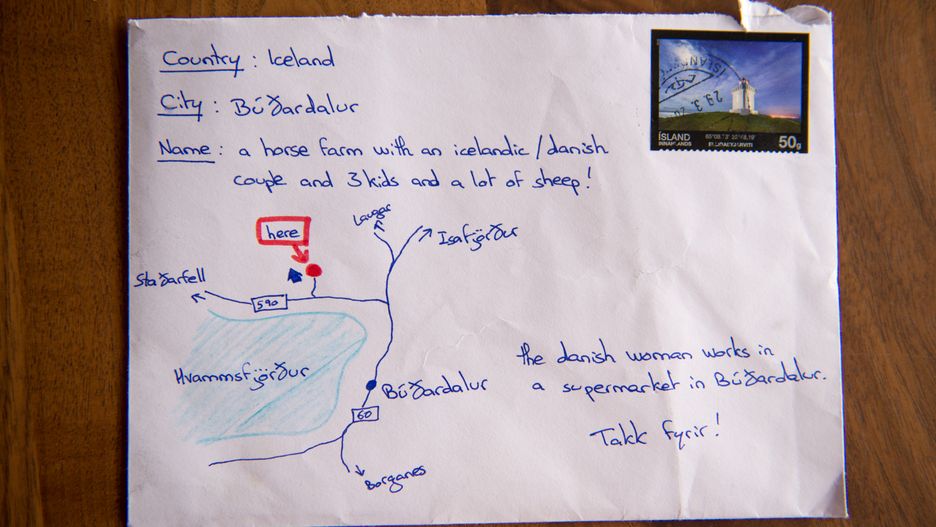 Country : Iceland
City : Búðardalur
Name : a horse farm with an icelandic/danish
couple and 3 kids and a lot of sheep!
ÍSLAND
INNANLANDS
50g
29.3.
ÍSLAND
here
Laugar
Isafjörður
Staðarfell
590
Hvammsfjörður
Búðardalur
60
Borganes
the danish woman works in
a supermarket in Búðardalur.
Takk fyrir!